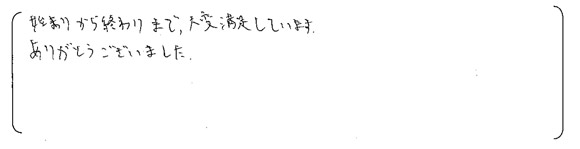 始まりから終わりまで、大変満足しています。
ありがとうございました。